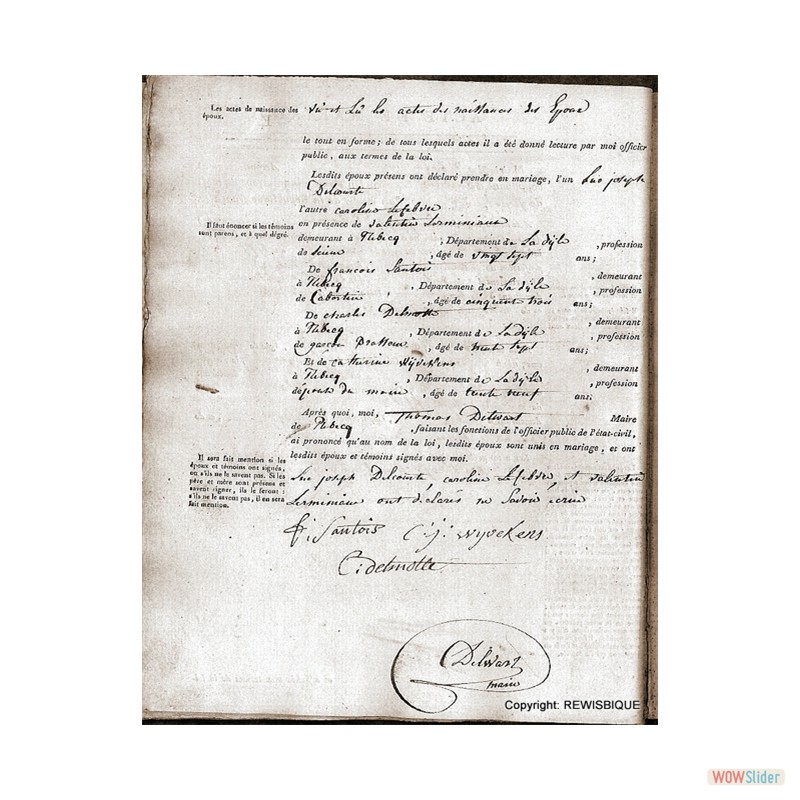 Les actes de naissance des
époux.
vû et Lû les actes des naissances des Epoux
le tout en forme; de tous lesquels actes il a été donné lecture par moi officier
public, aux termes de la loi.
Lesdits époux présens ont déclaré prendre en mariage, l'un Luc joseph
Delcourte
l'autre caroline Lefebvre
Il faut énoncer si les témoins
sont parens, et à quel dégré.
en présence de valentin Lerminiaux
demeurant à Rebecq , Département de La dyle , profession
de Scieur , âgé de vingt sept ans;
De francois Santois , demeurant
à Rebecq , Département de La dyle , profession
de Cabartier , âgé de cinquant trois ans;
De charles Delmotte , demeurant
à Rebecq , Département de La dyle , profession
de garcon Brasseur , âgé de trente sept ans;
Et de catherine Wyvekens , demeurant
à Rebecq , Département de La dyle , profession
d'épouse du maire , âgé de trente neuf ans.
Après quoi, moi, Thomas Delwart Maire
de Rebecq , faisant les fonctions de l'officier public de l'état-civil,
ai prononcé qu'au nom de la loi, lesdits époux sont unis en mariage, et ont
lesdits époux et témoins signés avec moi.
Il sera fait mention si les
époux et témoins ont signés,
ou s'ils ne le savent pas. Si les
père et mère sont présens et
savent signer, ils le feront:
s'ils ne le savent pas, il en sera
fait mention.
Luc joseph Delcourte, caroline Lefebvre, et valentin
Lerminiaux ont declarés ne Savoir ecrire
f: Santois C: j: wyvekens
C: delmotte
Delwart
maire
Copyright: REWISBIQUE
WOWSlider